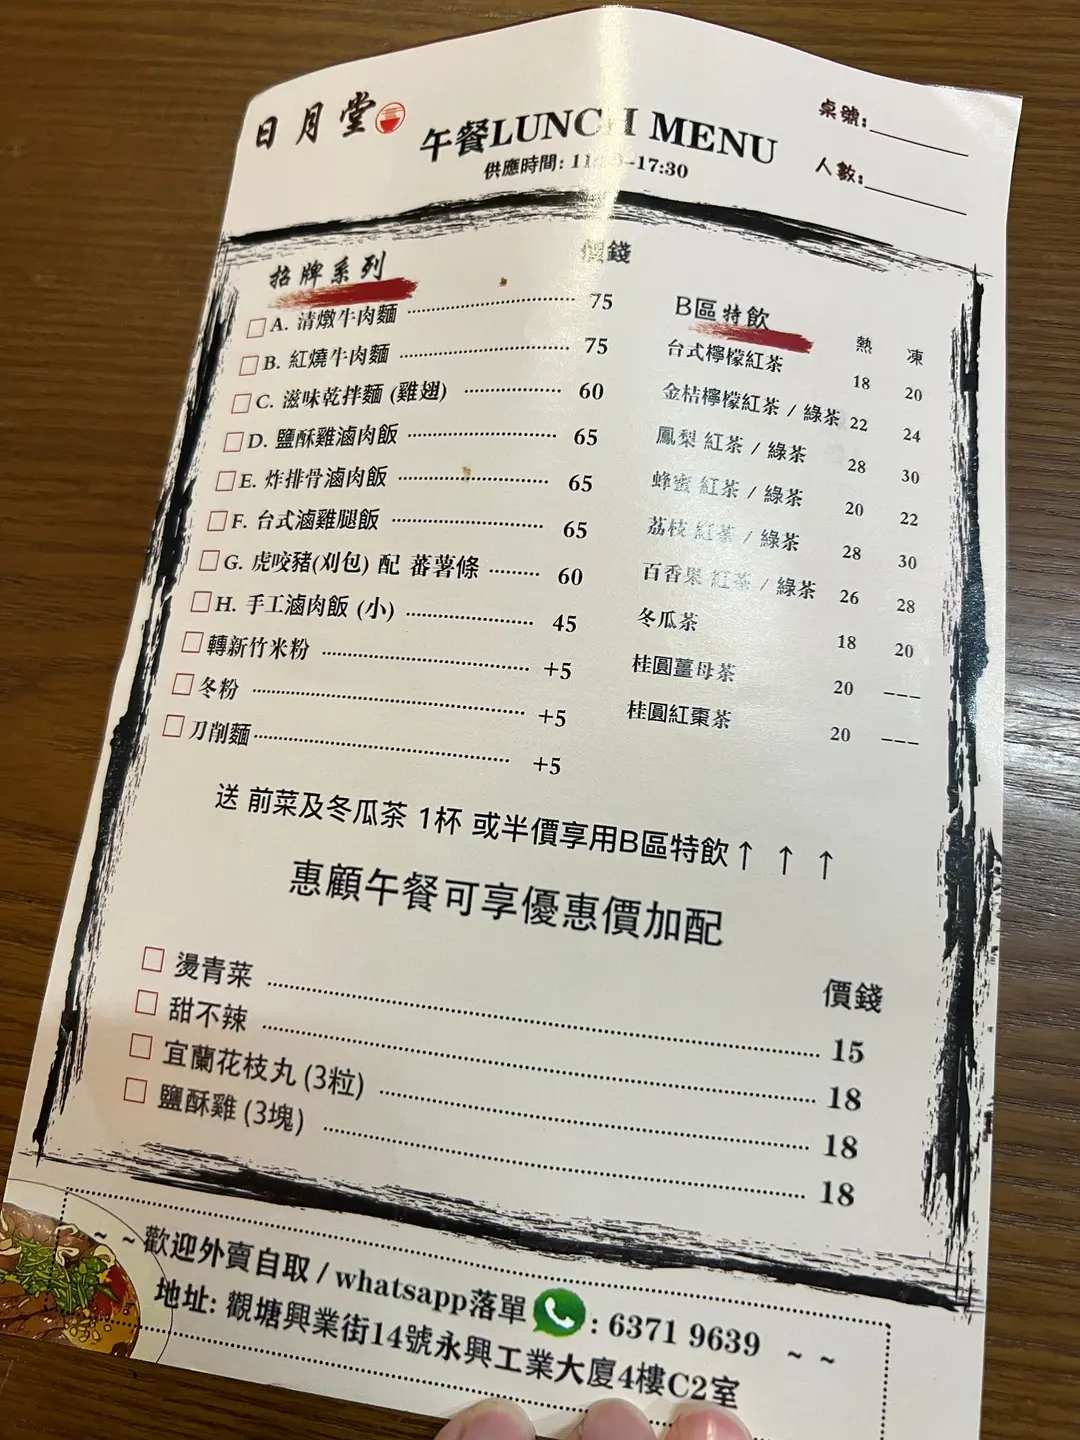 日月堂
午餐LUNCH MENU
供應時間: 11 –17:30
桌號:
人數:
招牌系列
價錢
A. 清燉牛肉麵 75
B. 紅燒牛肉麵 75
C. 滋味乾拌麵 (雞翅) 60
D. 鹽酥雞滷肉飯 65
E. 炸排骨滷肉飯 65
F. 台式滷雞腿飯 65
G. 虎咬豬(刈包) 配 蕃薯條 60
H. 手工滷肉飯 (小) 45
轉新竹米粉 +5
冬粉 +5
刀削麵 +5
B區特飲 熱 凍
台式檸檬紅茶 18 20
金桔檸檬紅茶 / 綠茶 22 24
鳳梨 紅茶 / 綠茶 28 30
蜂蜜 紅茶 / 綠茶 20 22
荔枝 紅茶 / 綠茶 28 30
百香果 紅茶 / 綠茶 26 28
冬瓜茶 18 20
桂圓薑母茶 20 ---
桂圓紅棗茶 20 ---
送 前菜及冬瓜茶 1杯 或半價享用B區特飲↑ ↑ ↑
惠顧午餐可享優惠價加配
價錢
燙青菜 15
甜不辣 18
宜蘭花枝丸 (3粒) 18
鹽酥雞 (3塊) 18
~ ~歡迎外賣自取 / whatsapp落單 : 6371 9639 ~ ~
地址: 觀塘興業街14號永興工業大廈4樓C2室